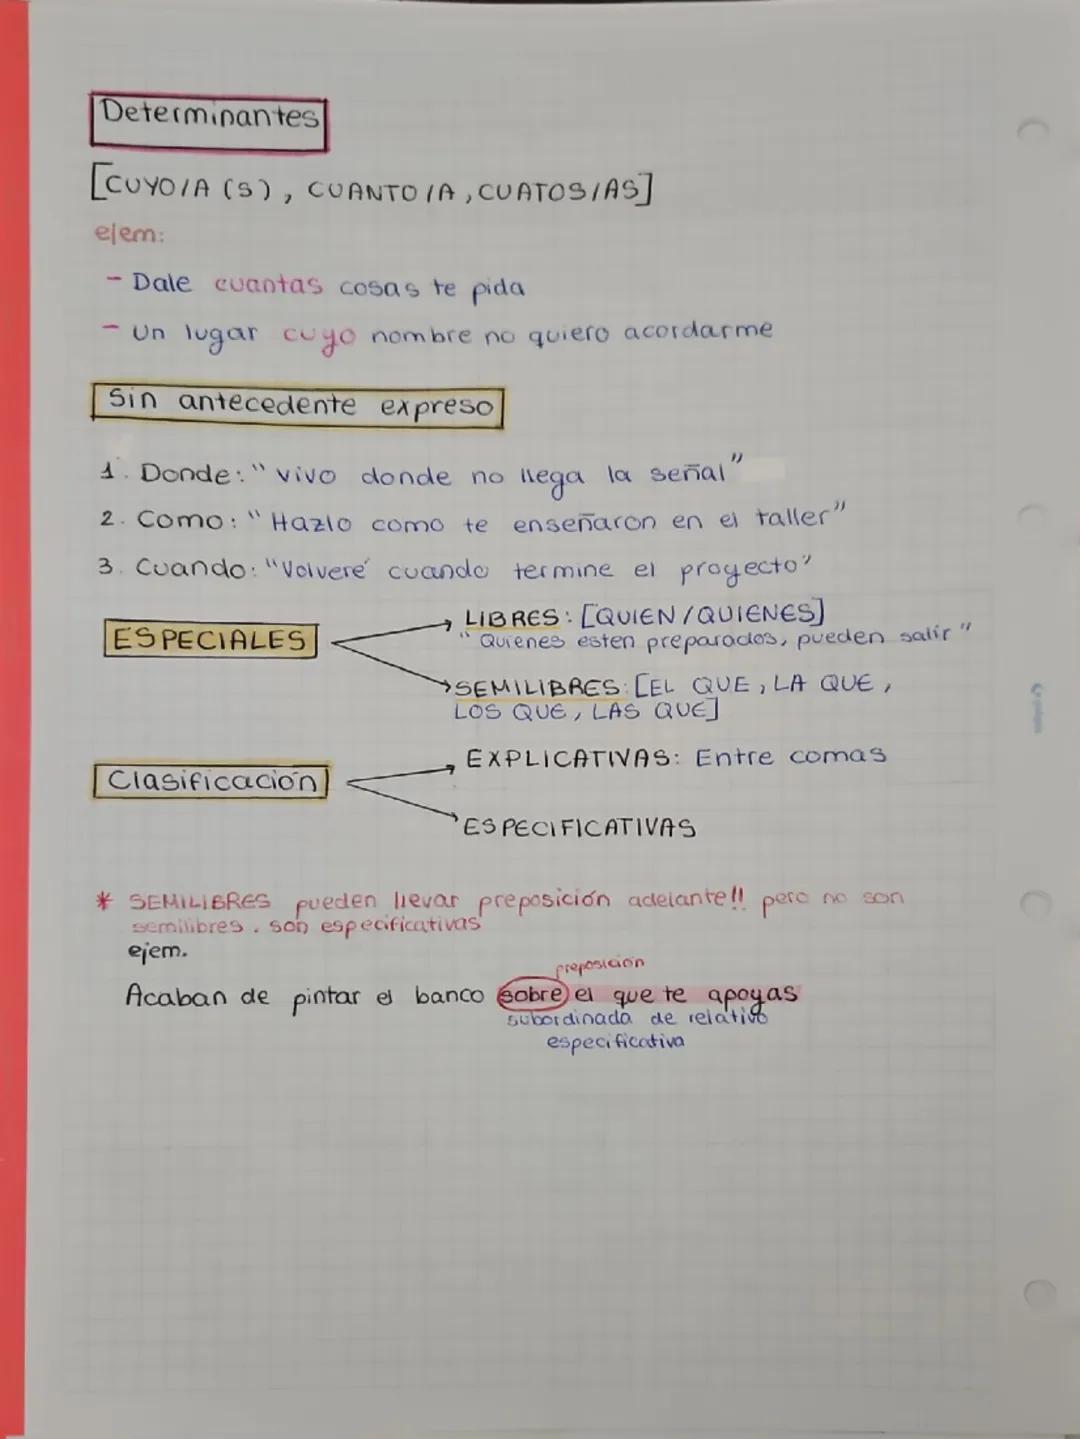 Determinantes
[CUYO/A (S), CUANTO/A, CUATOS/AS]
ejem:
- Dale cuantas cosas te pida
- Un lugar cuyo nombre no quiero acordarme
Sin antecedente expreso
1. Donde: "vivo donde no llega la señal"
2. Como: "Hazlo como te enseñaron en el taller"
3. Cuando: "Volveré cuando termine el proyecto"
ESPECIALES
LIBRES: [QUIEN/QUIENES]
"Quienes esten preparados, pueden salir"
SEMILIBRES: [EL QUE, LA QUE,
LOS QUE, LAS QUE]
Clasificación
EXPLICATIVAS: Entre comas
ESPECIFICATIVAS
* SEMILIBRES pueden llevar preposición adelante!! pero no son
semilibres. son especificativas
ejem.
preposición
Acaban de pintar el banco sobre el que te apoyas
subordinada de relativo
especificativa